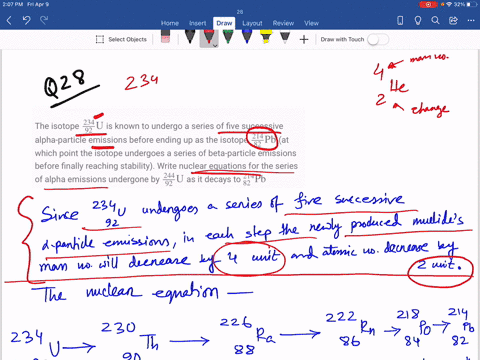 2:07 PM Fri Apr 9
28
32%
Home Insert Draw Layout Review View
Select Objects
Draw with Touch
Q28
234
4 mass no.
He
2 charge
The isotope 234 92 U is known to undergo a series of five successive
alpha-particle emissions before ending up as the isotope 214 82 Pb (at
which point the isotope undergoes a series of beta-particle emissions
before finally reaching stability). Write nuclear equations for the series
of alpha emissions undergone by 244 92 U as it decays to 214 82 Pb
Since 234 92 U undergoes a series of five successive
α-particle emissions, in each step the newly produced nuclide's
mass no. will decrease by 4 unit and atomic no. decrease by
2 unit.
The nuclear equation —
234 U → 230 90 Th → 226 88 Ra → 222 86 Rn → 218 84 Po → 214 82 Pb